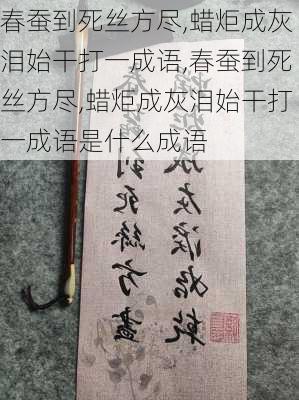 春蚕到死丝方尽,蜡炬成灰
泪始干打一成语,春蚕到死
丝方尽,蜡炬成灰泪始干打
一成语是什么成语
到死絲方盡
成灰淚始乾